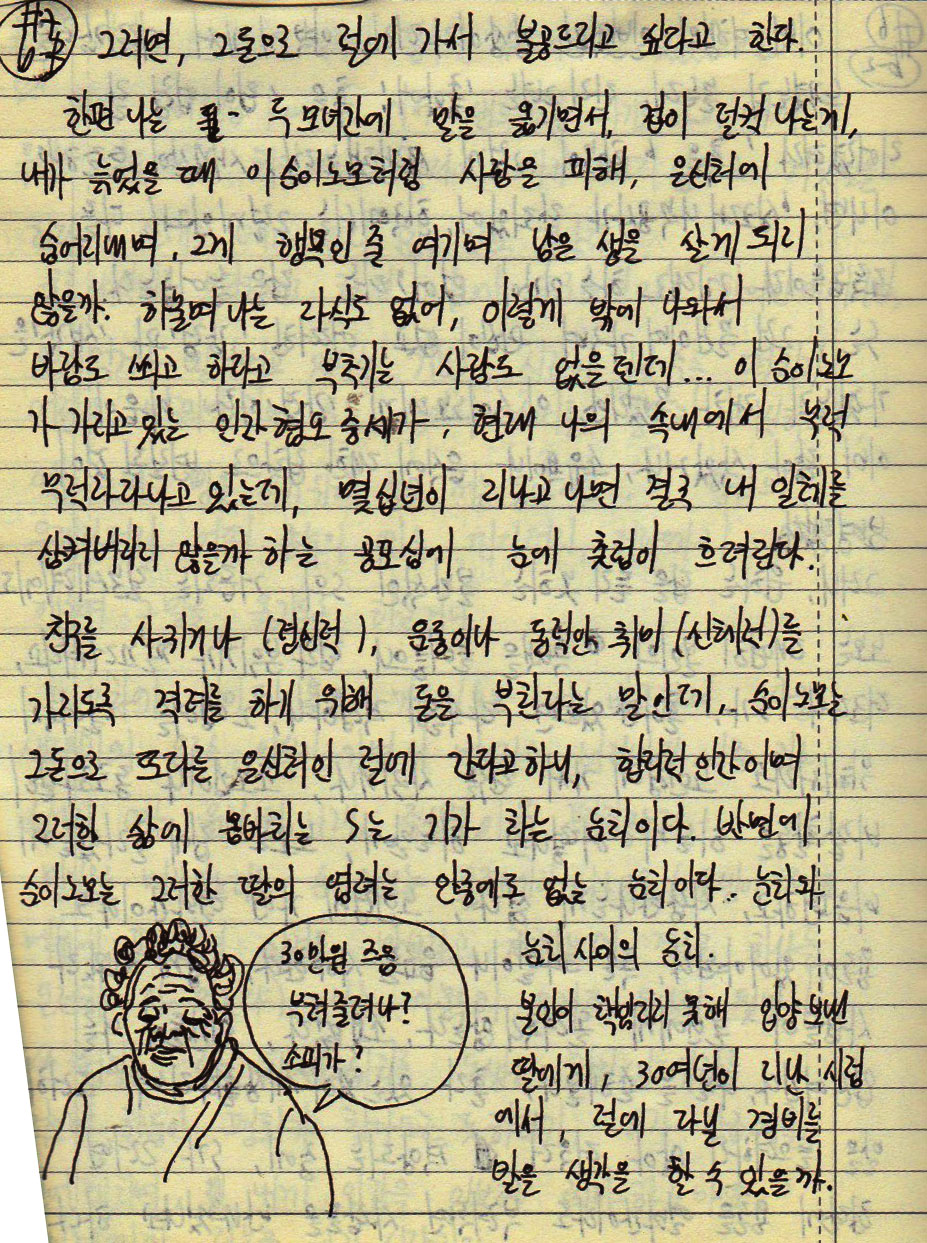 그러면, 그돈으로 절에 가서 불공드리고 싶다고 한다.
한편 나는 두 모녀간에 말을 옮기면서, 겁이 덜컥 나는게,
내가 늙었을 때 이 숭이노모처럼 사람을 피해, 은신처에
숨어지내며, 그게 행복인 줄 여기며 남은 생을 살게 되지
않을까. 하물며 나는 자식도 없어, 이렇게 밖에 나와서
바람도 쐬고 하라고 부추기는 사람도 없을텐데... 이 숭이노모
가 가지고있는 인간혐오 증세가, 현재 나의 속내에서 무럭
무럭자라나고 있는데, 몇십년이 지나고나면 결국 내 일체를
삼켜버리지 않을까 하는 공포심에 눈에 촛점이 흐려진다.
친구를 사귀거나 (정신적), 운동이나 동적인 취미 (신체적)를
가지도록 격려를 하기 위해 돈을 부친다는 말인데, 숭이노모는
그돈으로 또다른 은신처인 절에 간다고하니, 합리적 인간이며
그러한 삶에 몸바치는 S는 기가 차는 눈치이다. 반면에
숭이노모는 그러한 딸의 염려는 안중에도 없는 눈치이다. 눈치와
눈치사이의 눈치.
본인이 책임지지 못해 입양보낸
딸에게, 30여년이 지난 시점
에서, 절에 다닐 경비를
받을 생각을 할 수 있을까.
30만원 즈음
부쳐줄려나?
소피가?